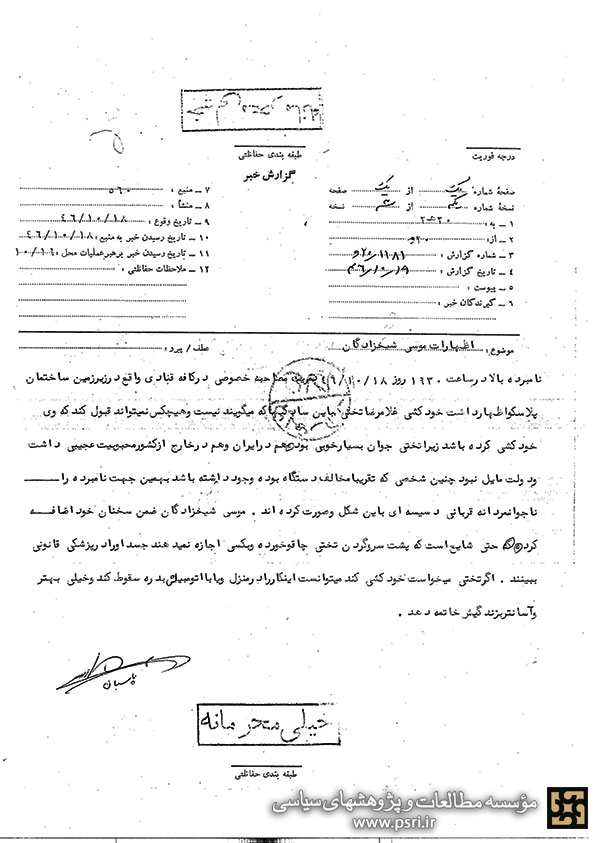 خیلی محرمانه
طبقه بندی حفاظتی
درجه فوریت
گزارش خبر
صفحهٔ شماره یک از یک صفحه
نسخهٔ شماره یکم از نسخه
۱ ـ به :
۲ ـ از :
۳ ـ شماره گزارش :
۴ ـ تاریخ گزارش :
۵ ـ پیوست :
۶ ـ گیرندگان خبر :
۷ ـ منبع : ۵۶۰
۸ ـ منشأ :
۹ ـ تاریخ وقوع : ۴۶/۱۰/۱۸
۱۰ ـ تاریخ رسیدن خبر به منبع : ۴۶/۱۰/۱۸
۱۱ ـ تاریخ رسیدن خبر برهبرعملیات محل :
۱۲ ـ ملاحظات حفاظتی :
موضوع : اظهارات موسی شیخزادگان
عطف / پیرو :
نامبرده بالا درساعت ۱۹۳۰ روز ۴۶/۱۰/۱۸ مصاحبه خصوصی درکافه قنادی واقع درزیرزمین ساختمان
پلاسکو اظهارداشت خودکشی غلامرضا تختی باین سادگیها که میگویند نیست وهیچکس نمیتواند قبول کند که وی
خودکشی کرده باشد زیرا تختی جوان بسیارخوبی بود وهم درایران وهم درخارج ازکشور محبوبیت عجیبی داشت
ودولت مایل نبود چنین شخصی که تقریبا مخالف دستگاه بوده وجود داشته باشد بهمین جهت نامبرده را
ناجوانمردانه قربانی دسیسه ای باین شکل وصورت کرده اند . موسی شیخزادگان ضمن سخنان خود اضافه
کرد حتی شایع است که پشت سروگردن تختی چاقو خورده وبکسی اجازه نمیدهند جسد اورا درپزشکی قانونی
ببینند . اگرتختی میخواست خودکشی کند میتوانست اینکاررا درمنزل ویا با اتومبیلش بدره سقوط کند وخیلی بهتر
وآسانتربزندگیش خاتمه دهد .
پاسبان
خیلی محرمانه
طبقه بندی حفاظتی
مؤسسه مطالعات و پژوهشهای سیاسی
www.psri.ir